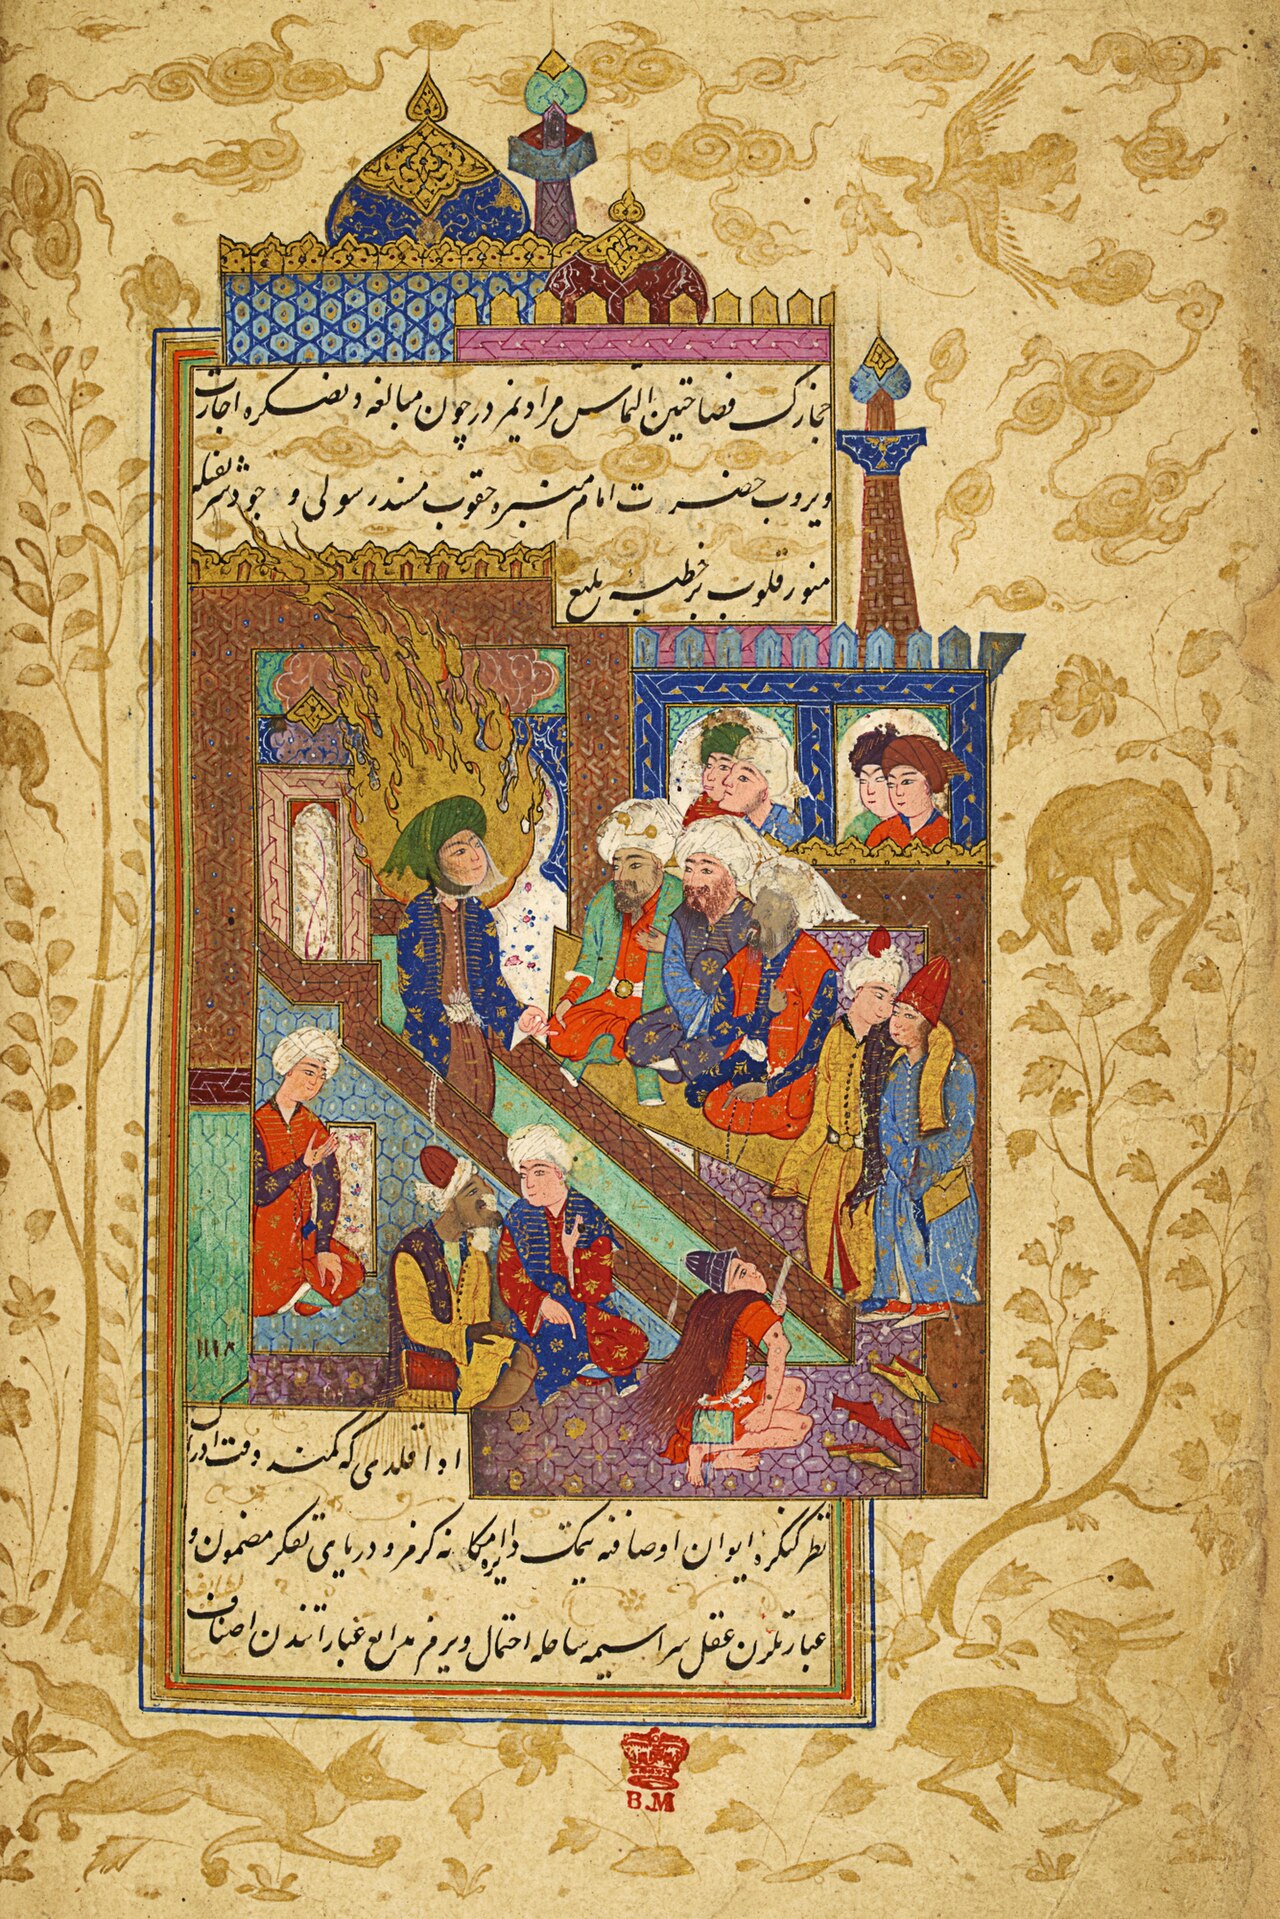 حجازك فصاحتین التماس مرادیمز در چون مبالغه و اجازت
ویروب حضرت امام منبره چقوب مسند رسولی وجود شریفیله
منور قلوب بر خطبهٔ بلیغ
ادا قلدی كه كمند دقت ادراك
نظر كنگرهٔ ایوان اوصافنه یتمك دایرهٔ امكانه كرمز و دریای تفكر مضمون و
عبارتلردن عقل سراسیمه ساحله احتمال ویرمز بدایع عباراتندن اصناف
B.M